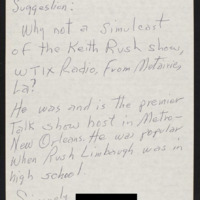 Suggestion:
Why not a simulcast
of the Keith Rush show,
WTIX Radio, From Metairie,
La?
He was and is the premier
talk show host in Metro-
New Orleans. He was popular
when Rush Limbaugh was in
high school.